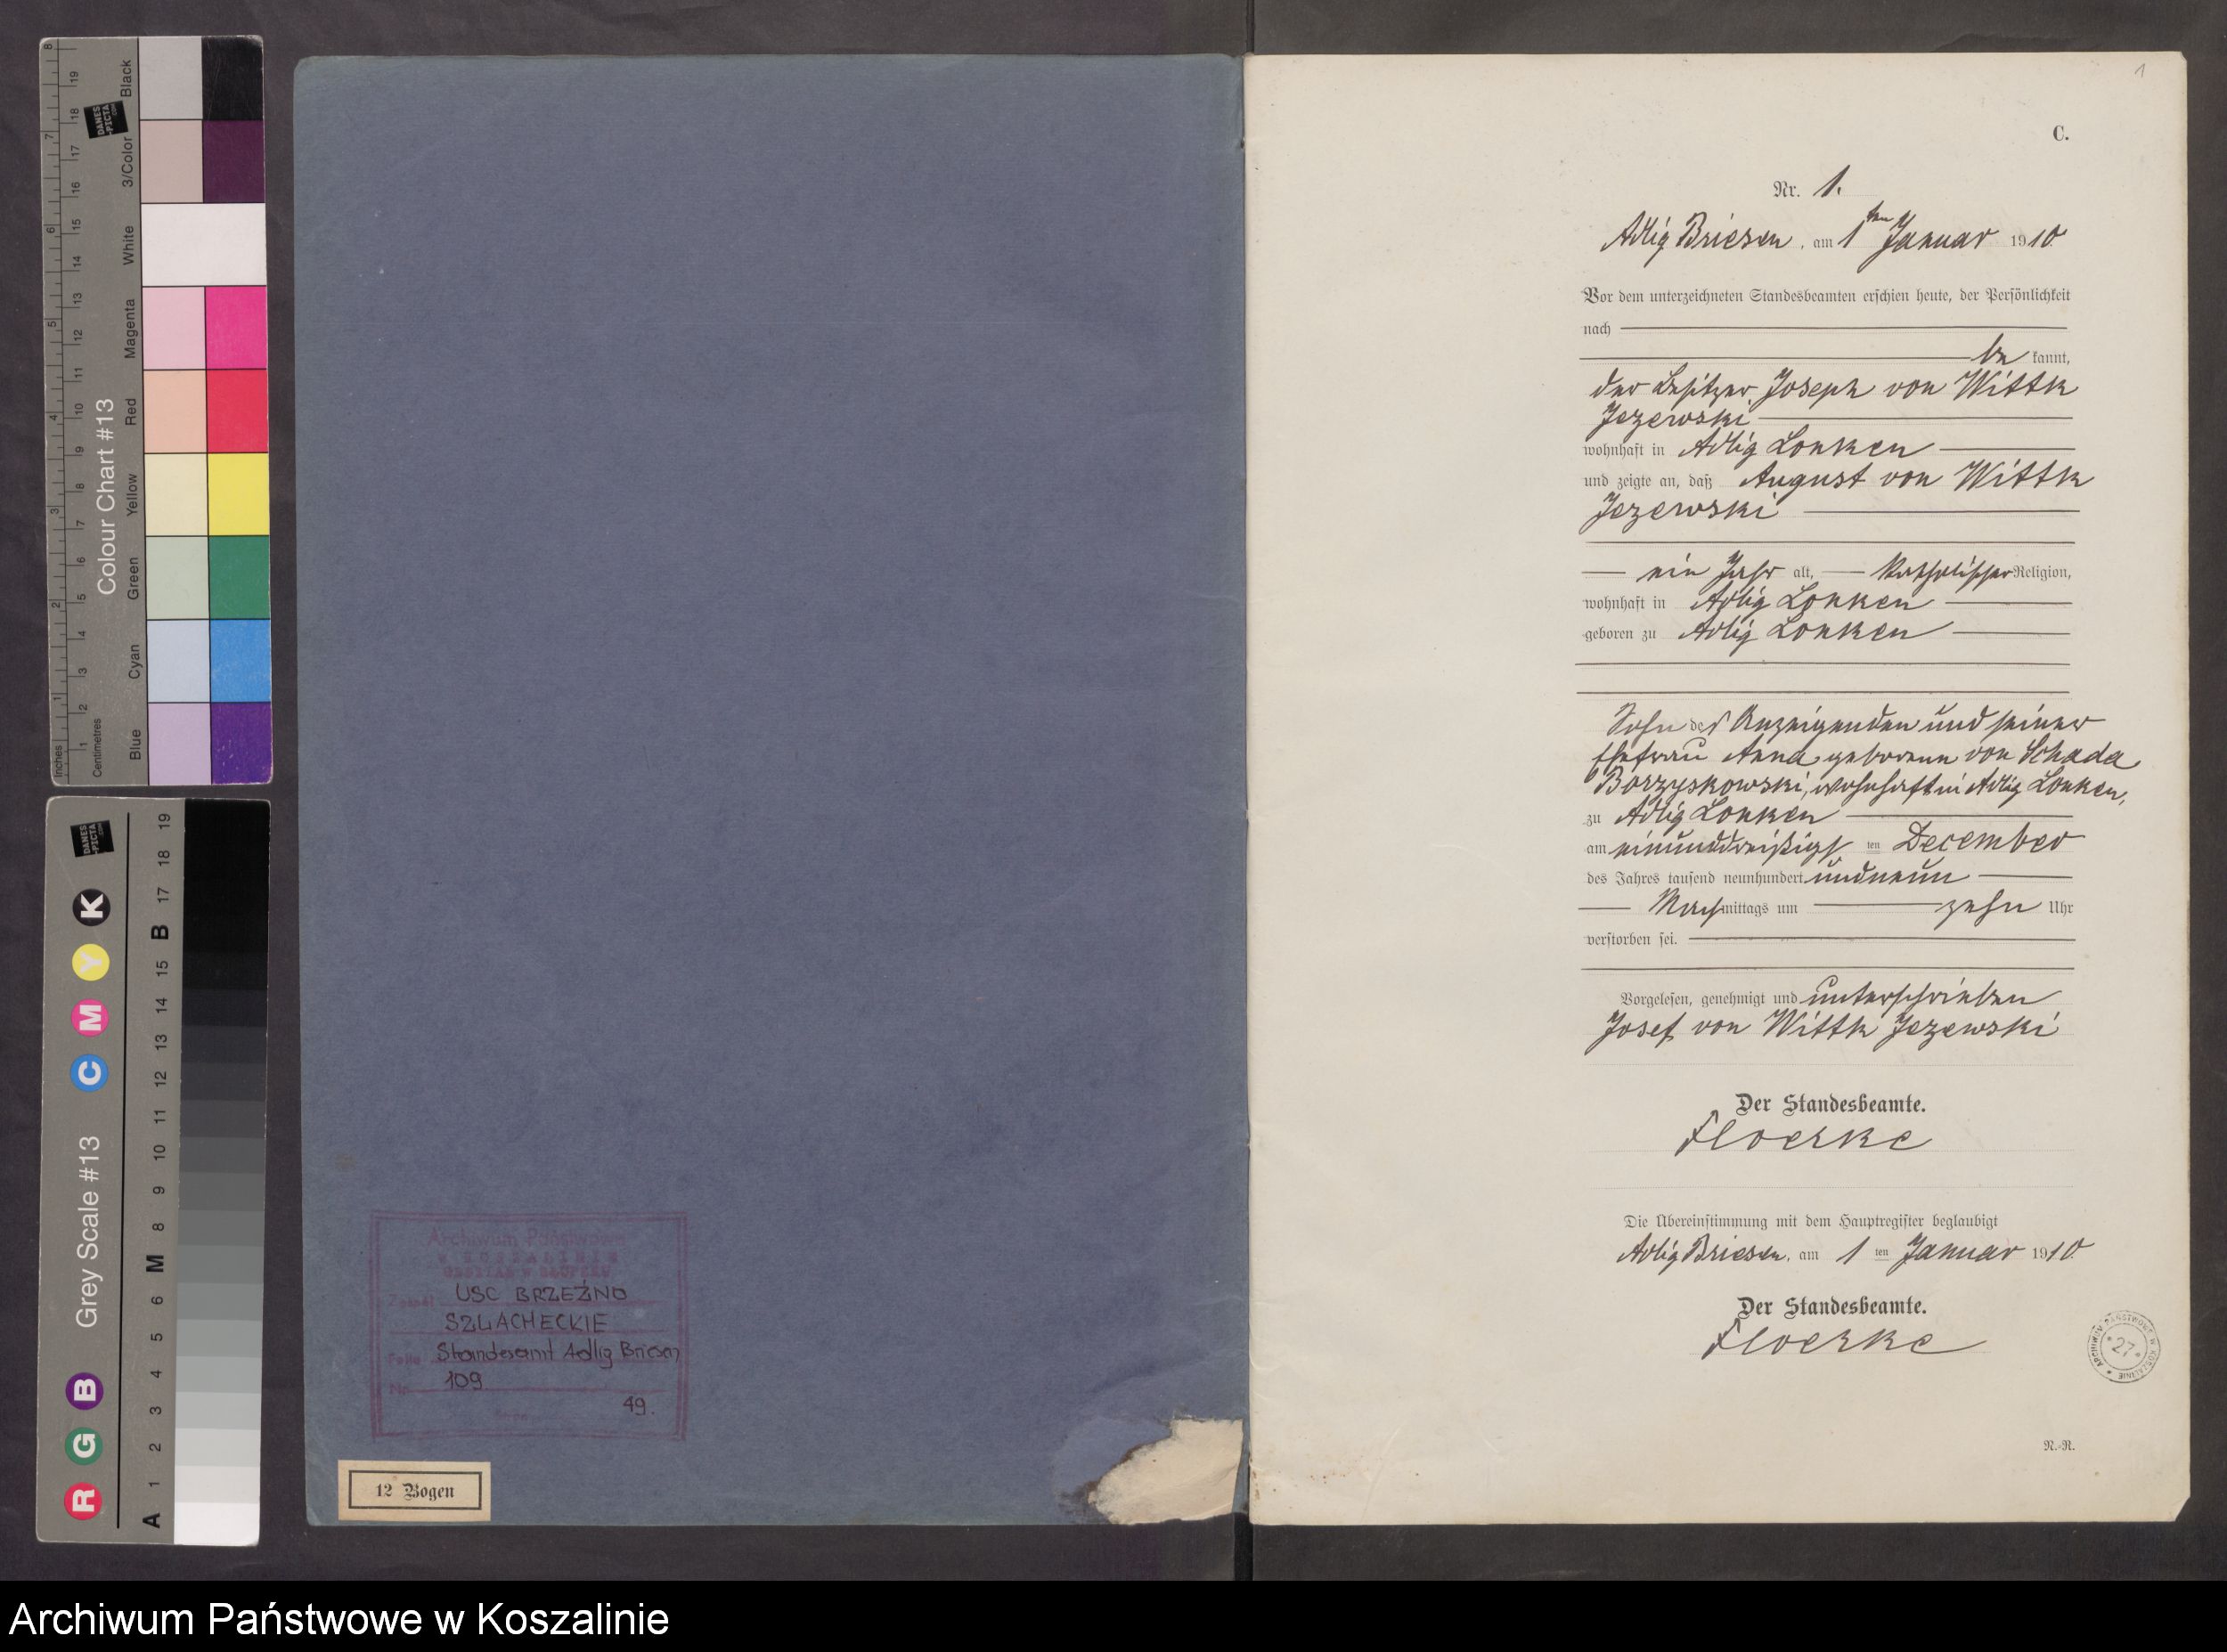 Colour Chart #13
Blue Cyan Green Yellow Red Magenta White 3/Color Black
Inches 1 2 3 4 5 6 7 8
Centimetres 1 2 3 4 5 6 7 8 9 10 11 12 13 14 15 16 17 18 19
DANES
-PICTA
.COM
Grey Scale #13
R G B C M Y K
A 1 2 3 4 5 6 M 8 9 10 11 12 13 14 15 B 17 18 19
DANES
-PICTA
.COM
Archiwum Państwowe
W KOSZALINIE
ODDZIAŁ W SŁUPSKU
Zespół USC BRZEŹNO
SZLACHECKIE
Standesamt Adlig Briesen
Nr 109
49.
12 Bogen
1
C.
Nr. 1.
Adlig Briesen, am 1ten Januar 1910
Vor dem unterzeichneten Standesbeamten erschien heute, der Persönlichkeit
nach
be kannt,
der Besitzer Joseph von Wittk
Jezewski
wohnhaft in Adlig Lonken
und zeigte an, daß August von Wittk
Jezewski
ein Jahr alt, katholischer Religion,
wohnhaft in Adlig Lonken
geboren zu Adlig Lonken
Sohn des Anzeigenden und seiner
Ehefrau Anna geborene von Schada
Borzyskowski, wohnhaft in Adlig Lonken,
zu Adlig Lonken
am einunddreißigs ten December
des Jahres tausend neunhundert und neun
Nachmittags um zehn Uhr
verstorben sei.
Vorgelesen, genehmigt und unterschrieben
Josef von Wittk Jezewski
Der Standesbeamte.
Floerke
Die Übereinstimmung mit dem Hauptregister beglaubigt
Adlig Briesen, am 1 ten Januar 1910
Der Standesbeamte.
Floerke
ARCHIWUM PAŃSTWOWE W KOSZALINIE
* 27 *
N.-R.
Archiwum Państwowe w Koszalinie